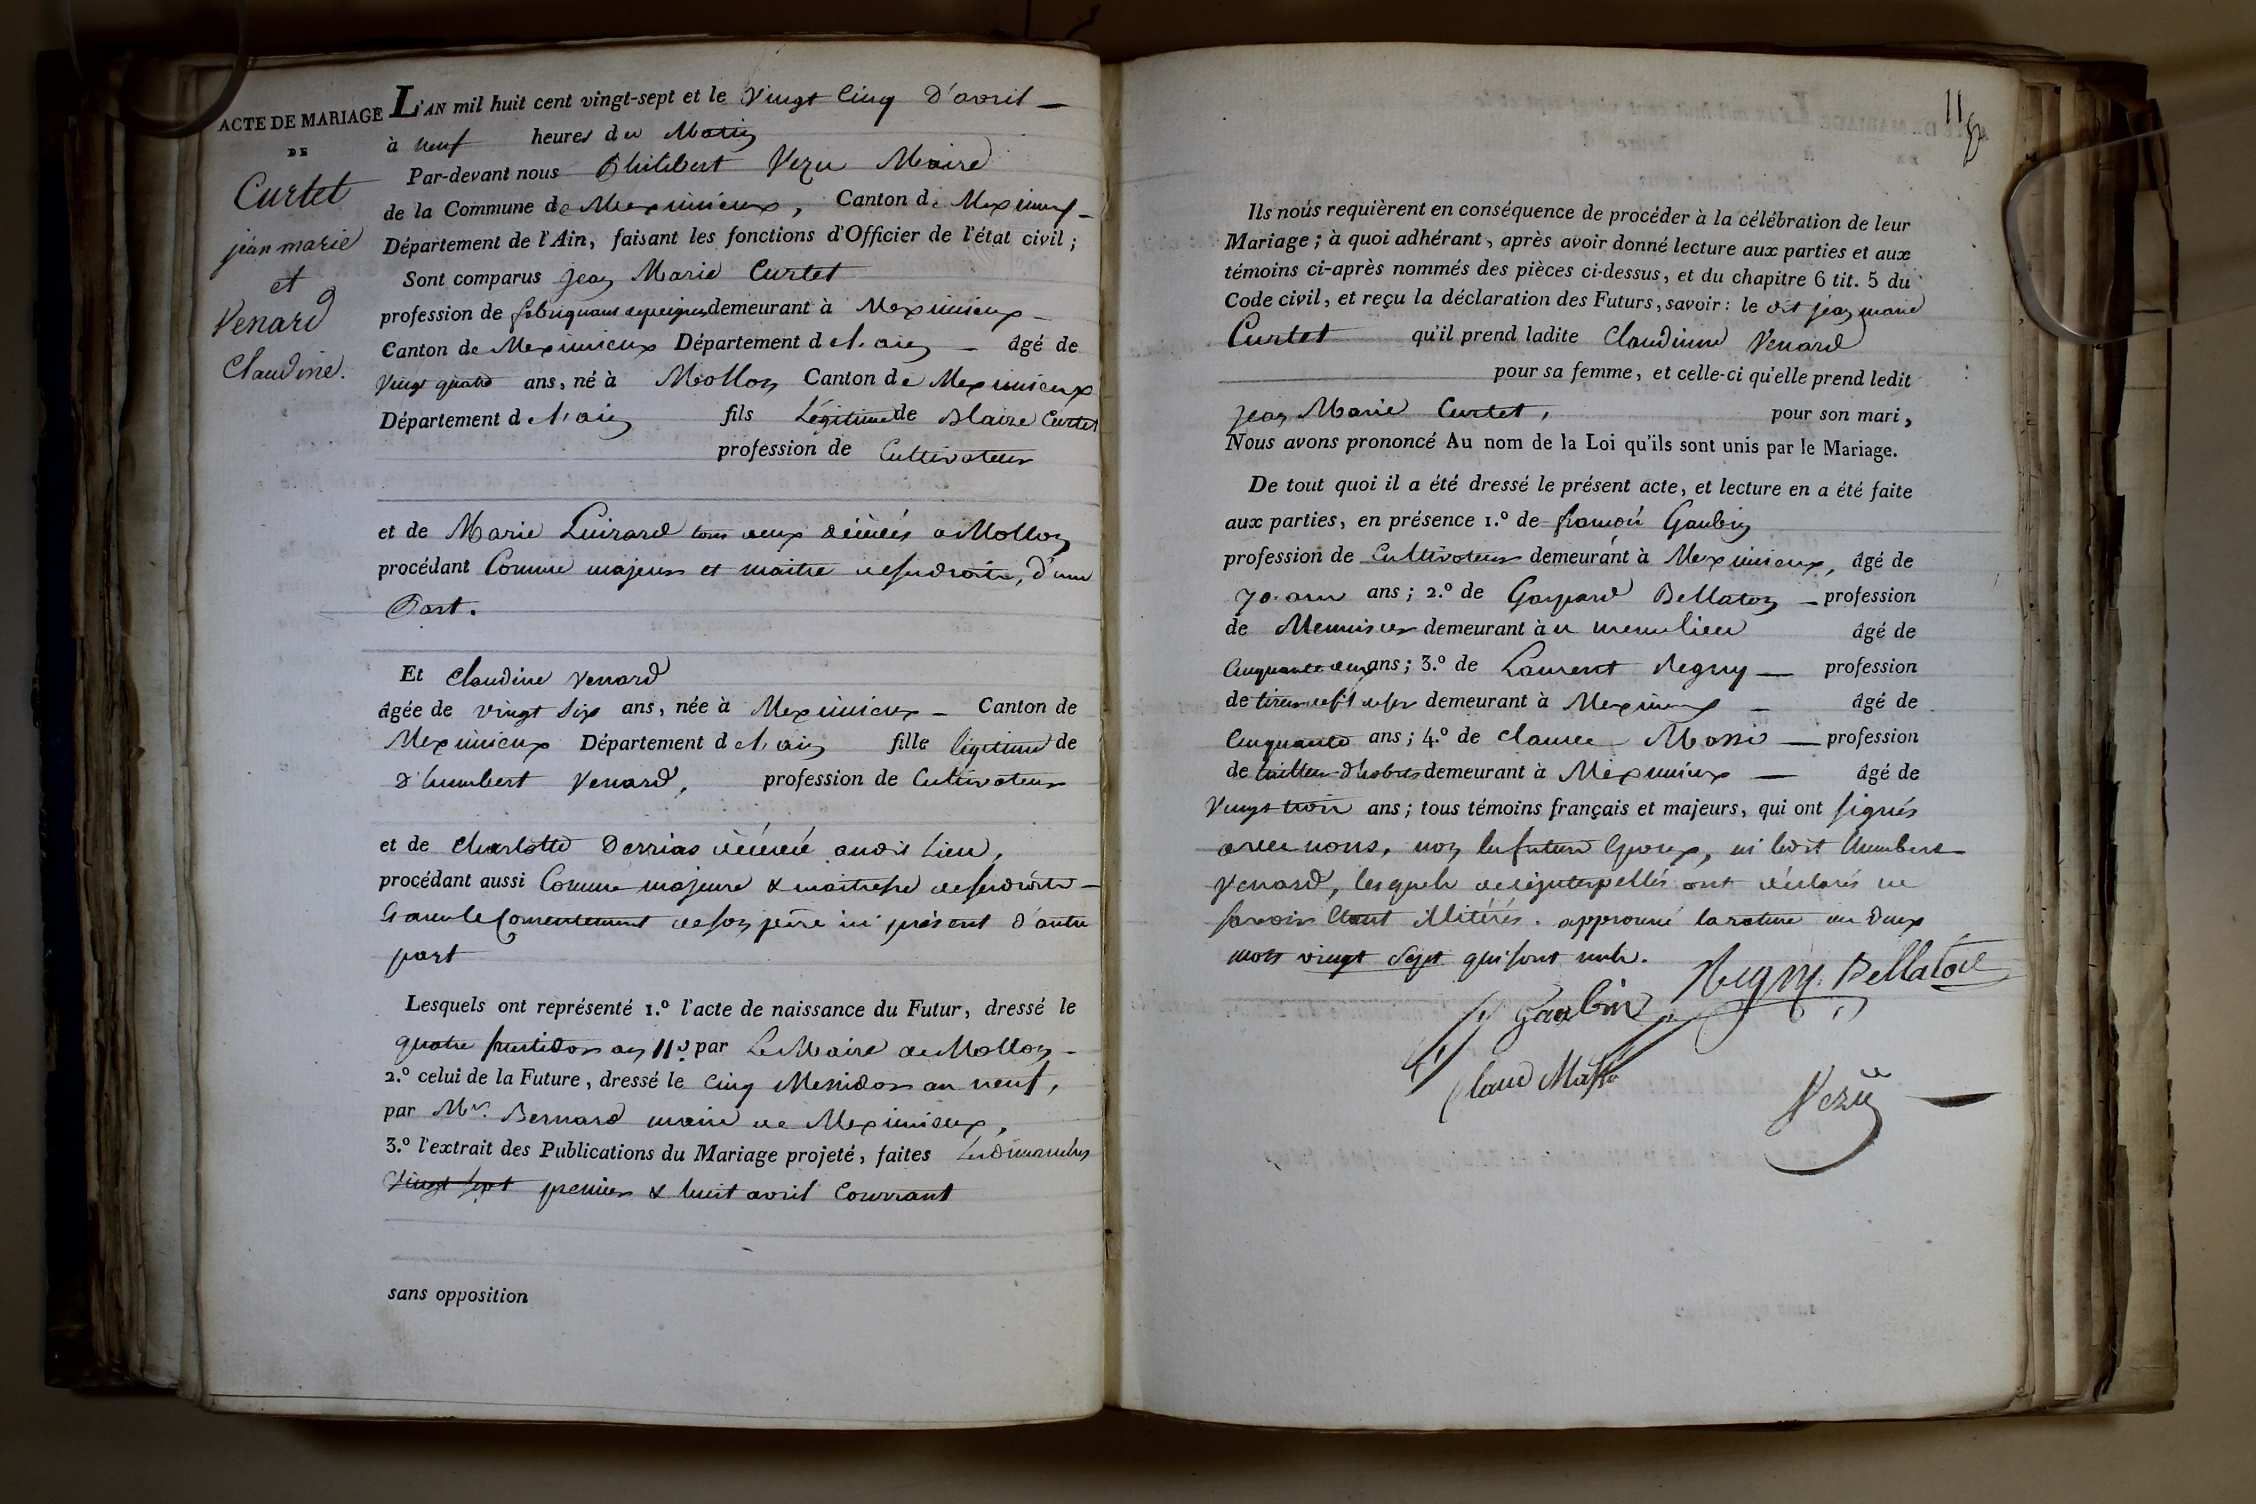 ACTE DE MARIAGE
DE
Curtet
jean marie
et
Venard
Claudine.
L'AN mil huit cent vingt-sept et le Vingt Cinq d'avril —
à neuf heures du Matin
Par-devant nous Philibert Vezu Maire
de la Commune de Meximieux, Canton de Meximieux —
Département de l'Ain, faisant les fonctions d'Officier de l'état civil;
Sont comparus Jean Marie Curtet
profession de fabriquant de peignes demeurant à Meximieux —
Canton de Meximieux Département de l'ain — âgé de
Vingt quatre ans, né à Mollon Canton de Meximieux
Département de l'ain fils Légitime de Blaise Curtet
profession de Cultivateur
et de Marie Guirard tous deux décédés a Mollon
procédant Comme majeur et maitre de ses droits, d'une
Part.
Et Claudine Venard
âgée de vingt Six ans, née à Meximieux — Canton de
Meximieux Département de l'ain fille légitime de
d'humbert Venard, profession de Cultivateur
et de Charlotte Derrias décédée audit Lieu,
procédant aussi Comme majeure & maitresse de ses droits —
Et avec le Consentement de son père ici présent d'autre
part
Lesquels ont représenté 1.º l'acte de naissance du Futur, dressé le
quatre fructidor an 11e par Le Maire de Mollon —
2.º celui de la Future, dressé le Cinq Messidor an neuf,
par Mr. Bernard maire de Meximieux,
3.º l'extrait des Publications du Mariage projeté, faites Les dimanches
Vingt sept premier & huit avril Courrant
sans opposition
Ils nous requièrent en conséquence de procéder à la célébration de leur
Mariage; à quoi adhérant, après avoir donné lecture aux parties et aux
témoins ci-après nommés des pièces ci-dessus, et du chapitre 6 tit. 5 du
Code civil, et reçu la déclaration des Futurs, savoir: le dit jean marie
Curtet qu'il prend ladite Claudinne Venard
pour sa femme, et celle-ci qu'elle prend ledit
Jean Marie Curtet, pour son mari,
Nous avons prononcé Au nom de la Loi qu'ils sont unis par le Mariage.
De tout quoi il a été dressé le présent acte, et lecture en a été faite
aux parties, en présence 1.º de francois Gaubin
profession de Cultivateur demeurant à Meximieux, âgé de
70 ans ans; 2.º de Gaspard Bellaton — profession
de Menuisier demeurant à u meme lieu âgé de
Cinquante deux ans; 3.º de Laurent Regny — profession
de tireur de fil de fer demeurant à Meximieux — âgé de
Cinquante ans; 4.º de Claude Massé — profession
de tailleur d'habits demeurant à Meximieux — âgé de
Vingt trois ans; tous témoins français et majeurs, qui ont signés
avec nous, non les futurs Epoux, ni ledit humbert
Venard, lesquels de ce interpellés ont déclarés ne
savoir Etant illitérés. approuvé la rature de deux
mots vingt Sept qui sont nuls.
Regny Bellaton
Gaubin
Claud Massé
Vezu